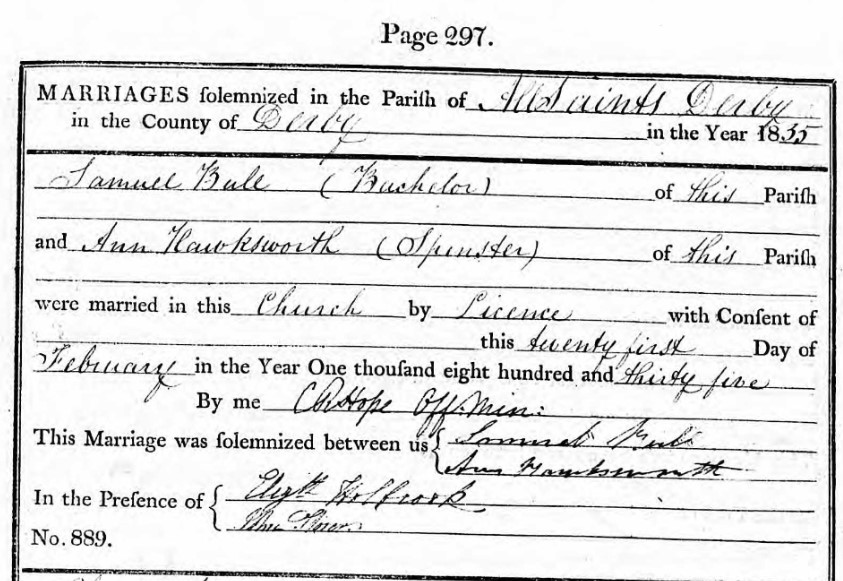 Page 297.
MARRIAGES ſolemnized in the Pariſh of All Saints Derby
in the County of Derby in the Year 1835
Samuel Bull (Bachelor) of this Pariſh
and Ann Hawksworth (Spinster) of this Pariſh
were married in this Church by Licence with Conſent of
this twenty first Day of
February in the Year One thouſand eight hundred and thirty five
By me Hope Off. Min:
This Marriage was ſolemnized between us { Samuel Bull
Ann Hawksworth
In the Preſence of { Holbrook
No. 889.